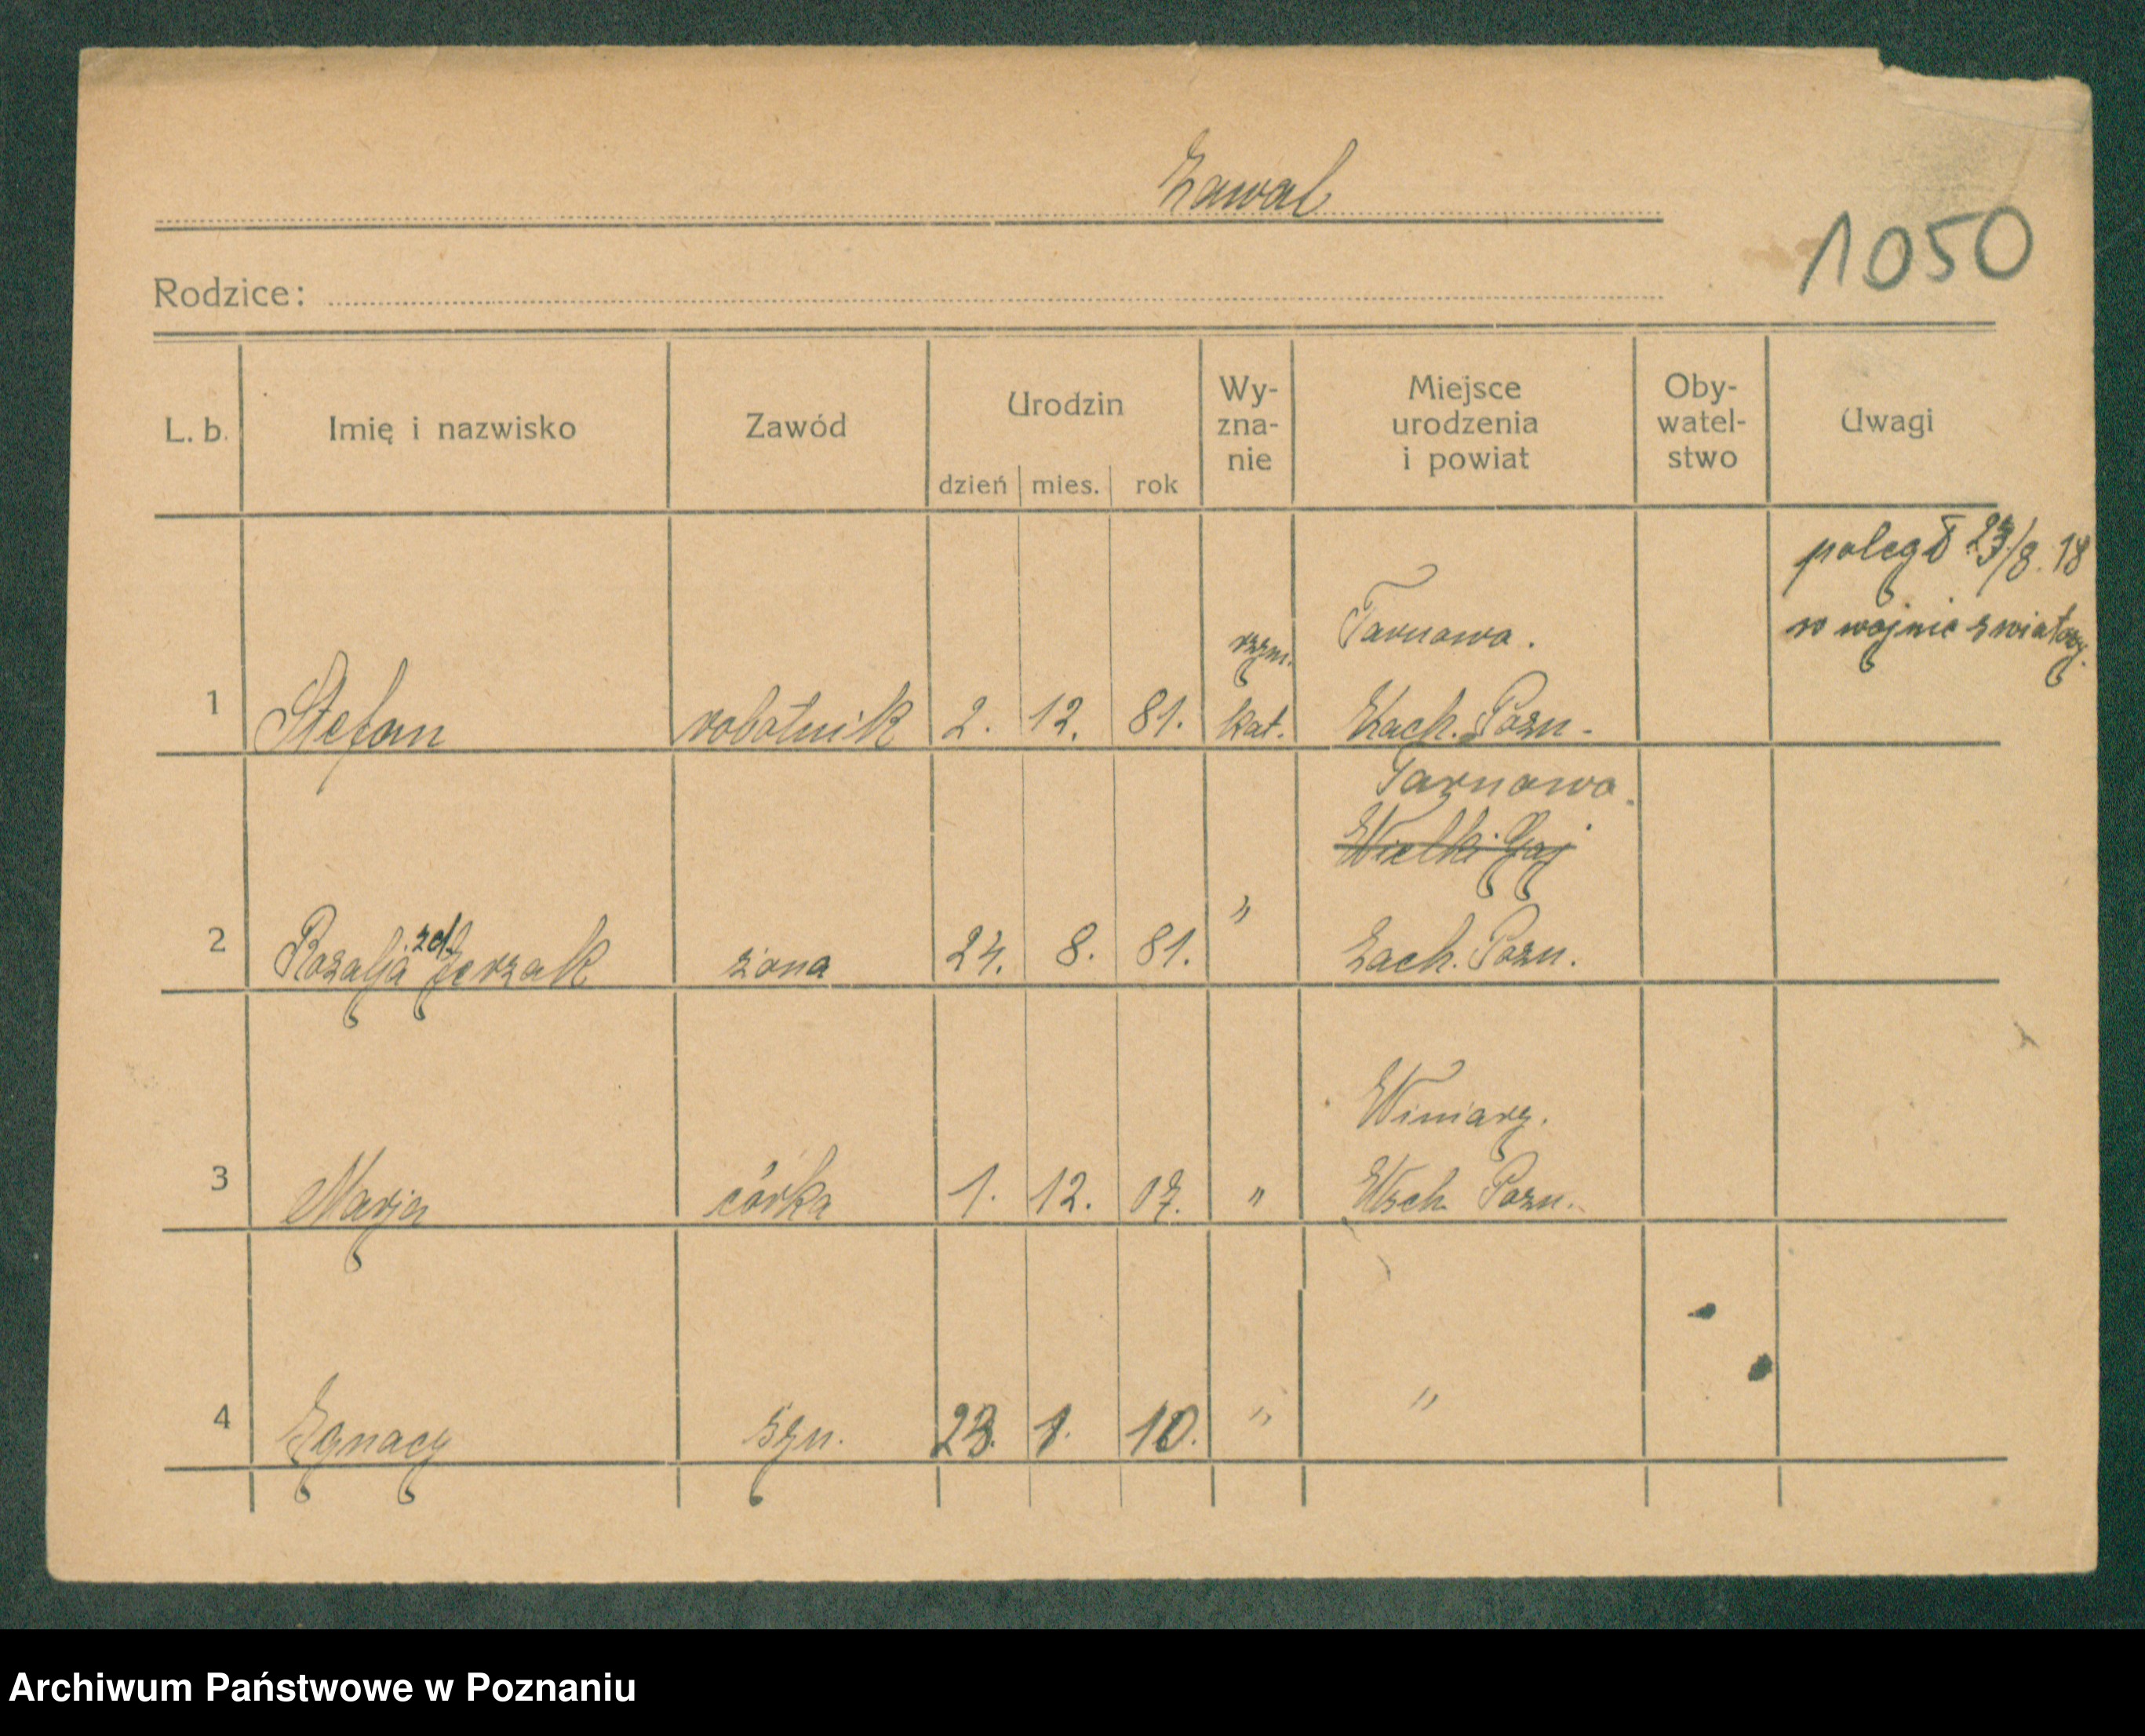 Zawal
1050
Rodzice:
L. b. Imię i nazwisko Zawód Urodzin dzień mies. rok Wy-zna-nie Miejsce urodzenia i powiat Oby-watel-stwo Uwagi
poległ /8. 18
w wojnie światowej.
Tarnowo.
1 Stefan robotnik 2. 12. 81. rzym. kat. Zach. Pozn.
Tarnowo.
Wielki Gaj
2 Rozalja zd. Jerzak żona 24. 8. 81. " Zach. Pozn.
Winiary.
3 Marja córka 1. 12. 07. " Wsch. Pozn.
4 Ignacy syn. 1. 10. " "
Archiwum Państwowe w Poznaniu